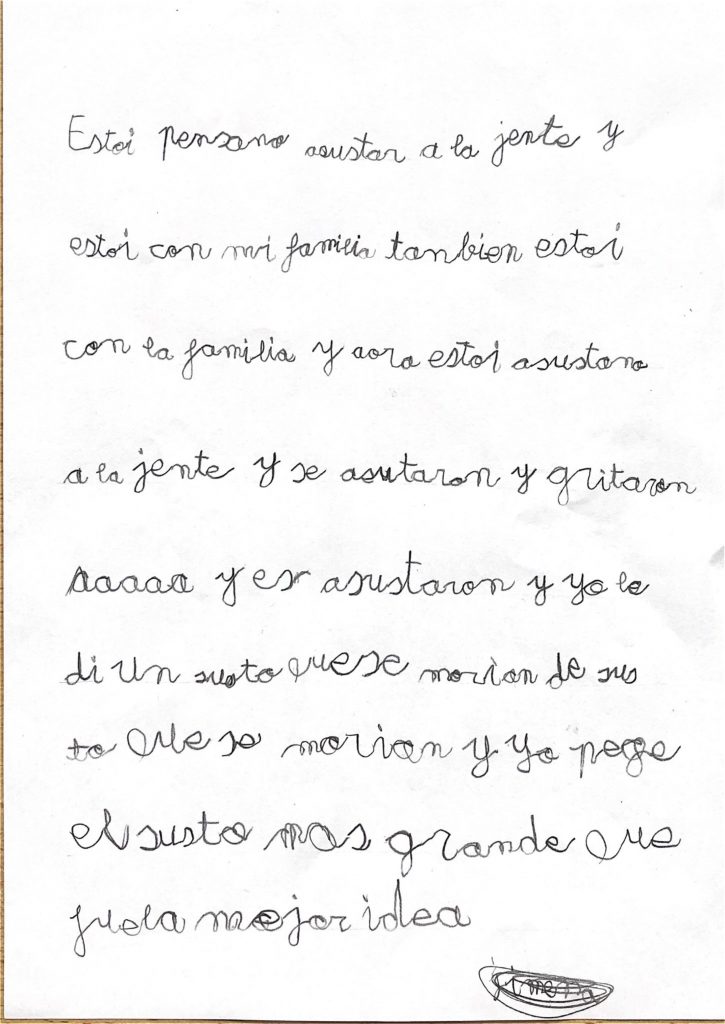 Estoi pensano asustar a la jente y
estoi con mi familia tanbien estoi
con la familia y aora estoi asustano
a la jente y se asutaron y gritaron
aaaaa y es asustaron y yo le
di un susto que se morian de sus
to que se morian y yo pege
el susto mas grande que
fue la mejor idea
jimena